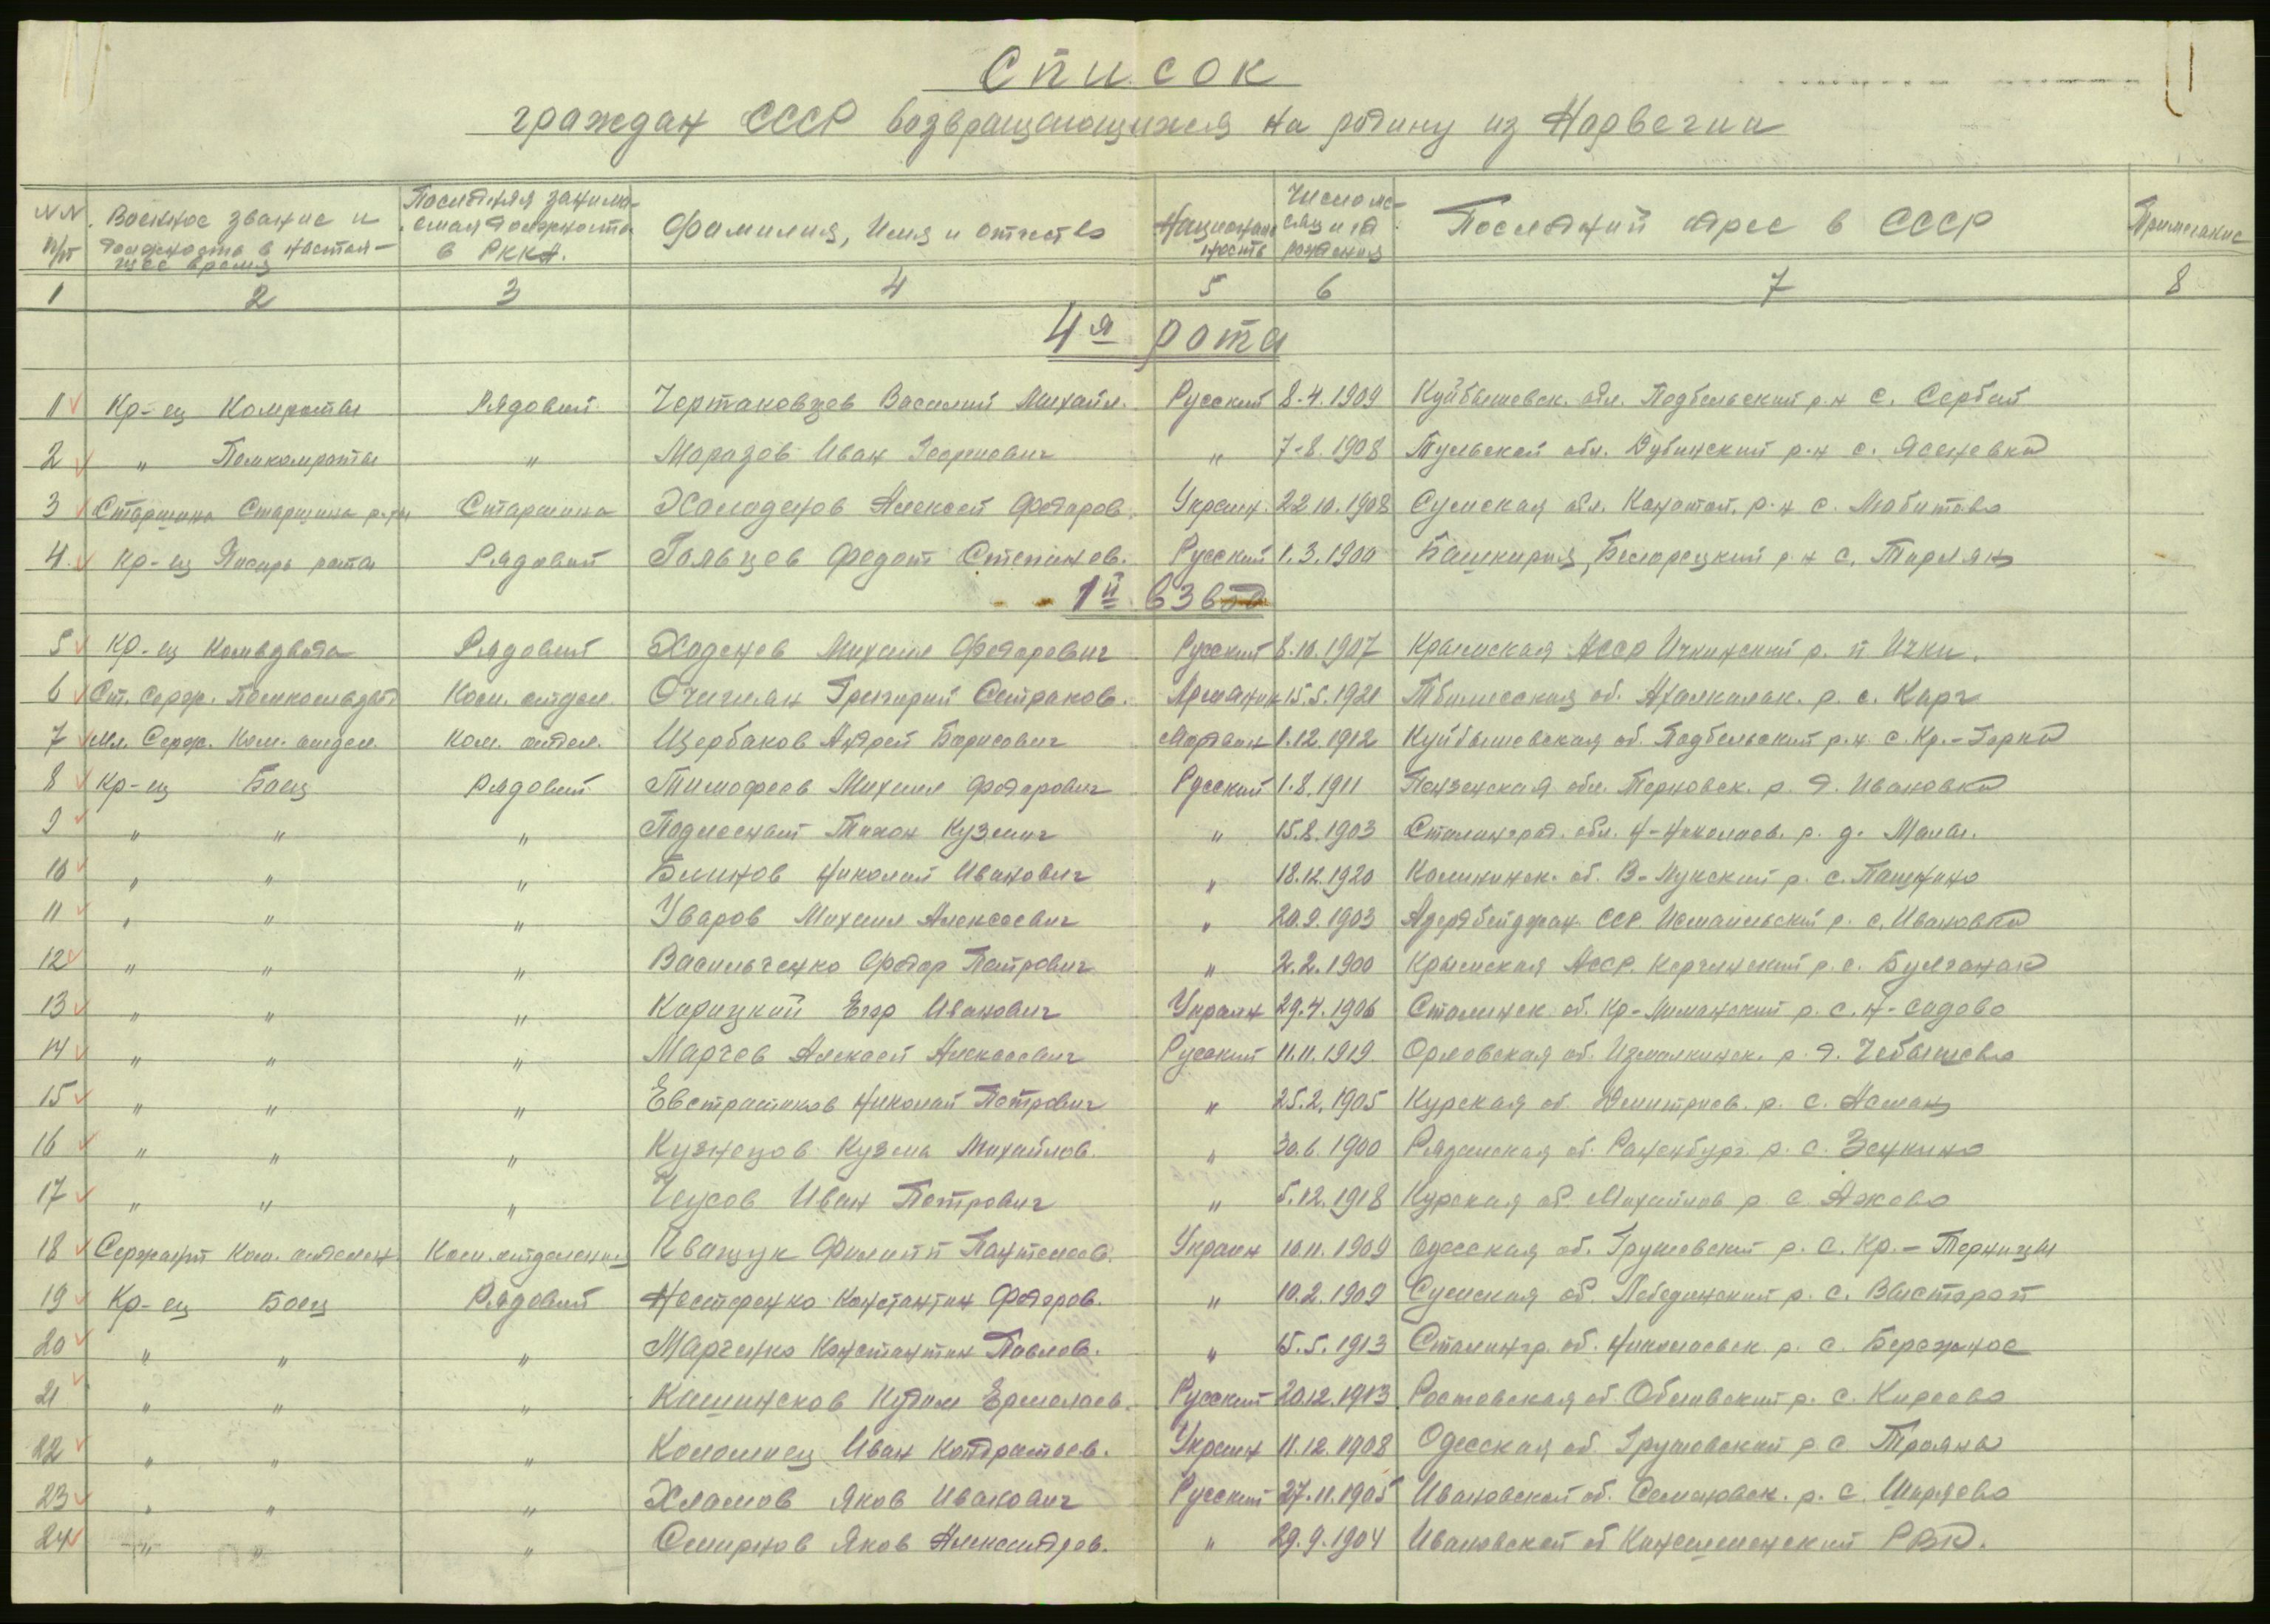 Список
граждан СССР возвращающихся на родину из Норвегии
NN п/п | Военное звание и должность в настоящее время | Последняя занимаемая должность в РККА. | Фамилия, Имя и отчество | Националность | Число месяц и год рождения | Последний адрес в СССР | Примечание
1 2 3 4 5 6 7 8
4я рота
1 Кр-ец Комроты Рядовой Чертаковцев Василий Михайл. Русский 8-4.1909 Куйбышевск. обл. Подбельский р-н с. Сербай
2 " Помкомроты " Морозов Иван Георгиевич " 7-8.1908 Тульской обл. Дубинский р-н с. Ясеневка
3 Старшина Старшина роты Старшина Холоденов Алексей Федоров. Украин. 22.10.1908 Сумская обл. Конотоп. р-н с. Любитово
4. Кр-ец Писарь роты Рядовой Гольцев Федот Степанов. Русский 1.3.1900 Башкирия, Белорецкий р-н с. Тирлян
1й взвод
5 Кр-ец Комвзвода Рядовой Ходенев Михаил Федорович Русский 8.10.1907 Крымская АССР Ичкинский р. п Ички.
6 Ст. Серж. Помкомвзвод Ком. отдел. Григорий Армянин 15.5.1921 Тбилисская об. Ахалкалак. р. с. Карч
7 Мл. Серж. Ком. отдел. Ком. отдел. Щербаков Андрей Борисович Мордвин 1.12.1912 Куйбышевская об. Подбельский р-н с. Кр.-Горка
8 Кр-ец Боец Рядовой Тимофеев Михаил Федорович Русский 1.8.1911 Пензенская обл. Терновск. р. д. Ивановка
9 " " " Тихон Кузмич " 15.8.1903 Сталинград. обл. Н-Николаев. р. д.
10 " " " Блинов Николай Иванович " 18.12.1920 Калининск. об. В-Лукский р. с. Пашнино
11 " " " Уваров Михаил Алексеевич " 20.9.1903 Азербейджан ССР. Исмаильский р. с. Ивановка
12 " " " Васильченко Федор Петрович " 2.2.1900 Крымская АССР. Керченский р. с. Булганак
13 " " " Карицкий Егор Иванович Украин 29.4.1906 Сталинск об. Кр-Лиманский р. с. Н-Садово
14 " " " Марчев Алексей Алексеевич Русский 11.11.1919. Орловская об. Измалкинск. р. д. Чебышево
15 " " " Евстратиков Николай Петрович " 25.2.1905 Курская об Дмитриев. р. с. Асмац
16 " " " Кузнецов Кузма Михайлов. " 30.6.1900 Рязанская об. Раненбург. р. с. Зенкино
17 " " " Чеусов Иван Петрович " 5.12.1918 Курская об. Михайлов р с. Ажово
18 Сержант Ком. отделен. Ком. отделения Иващук Филипп Пантелеев. Украин 10.11.1909 Одесская об. Грушевский р. с. Кр.-Терницы
19 Кр-ец Боец Рядовой Нестеренко Константин Федоров. " 10.2.1909 Сумская об. Лебединский р. с. Высторот
20 " " " Марченко Константин Павлов. " 15.5.1913 Сталингр. об. Николаевск р. с. Бережное
21 " " " Ермолаев. Русский 20.12.1913 Ростовская об. Обливский р. с. Киреево
22 " " " Коломиец Иван Кондратьев. Украин 11.12.1908 Одесская об. Грушовский р с Трояны
23 " " " Хламов Яков Иванович Русский 27.11.1905 Ивановской об. Семеновск. р. с. Ширяево
24 " " " Смирнов Яков Александров. " 29.9.1904 Ивановской об Кинешменский РВК.